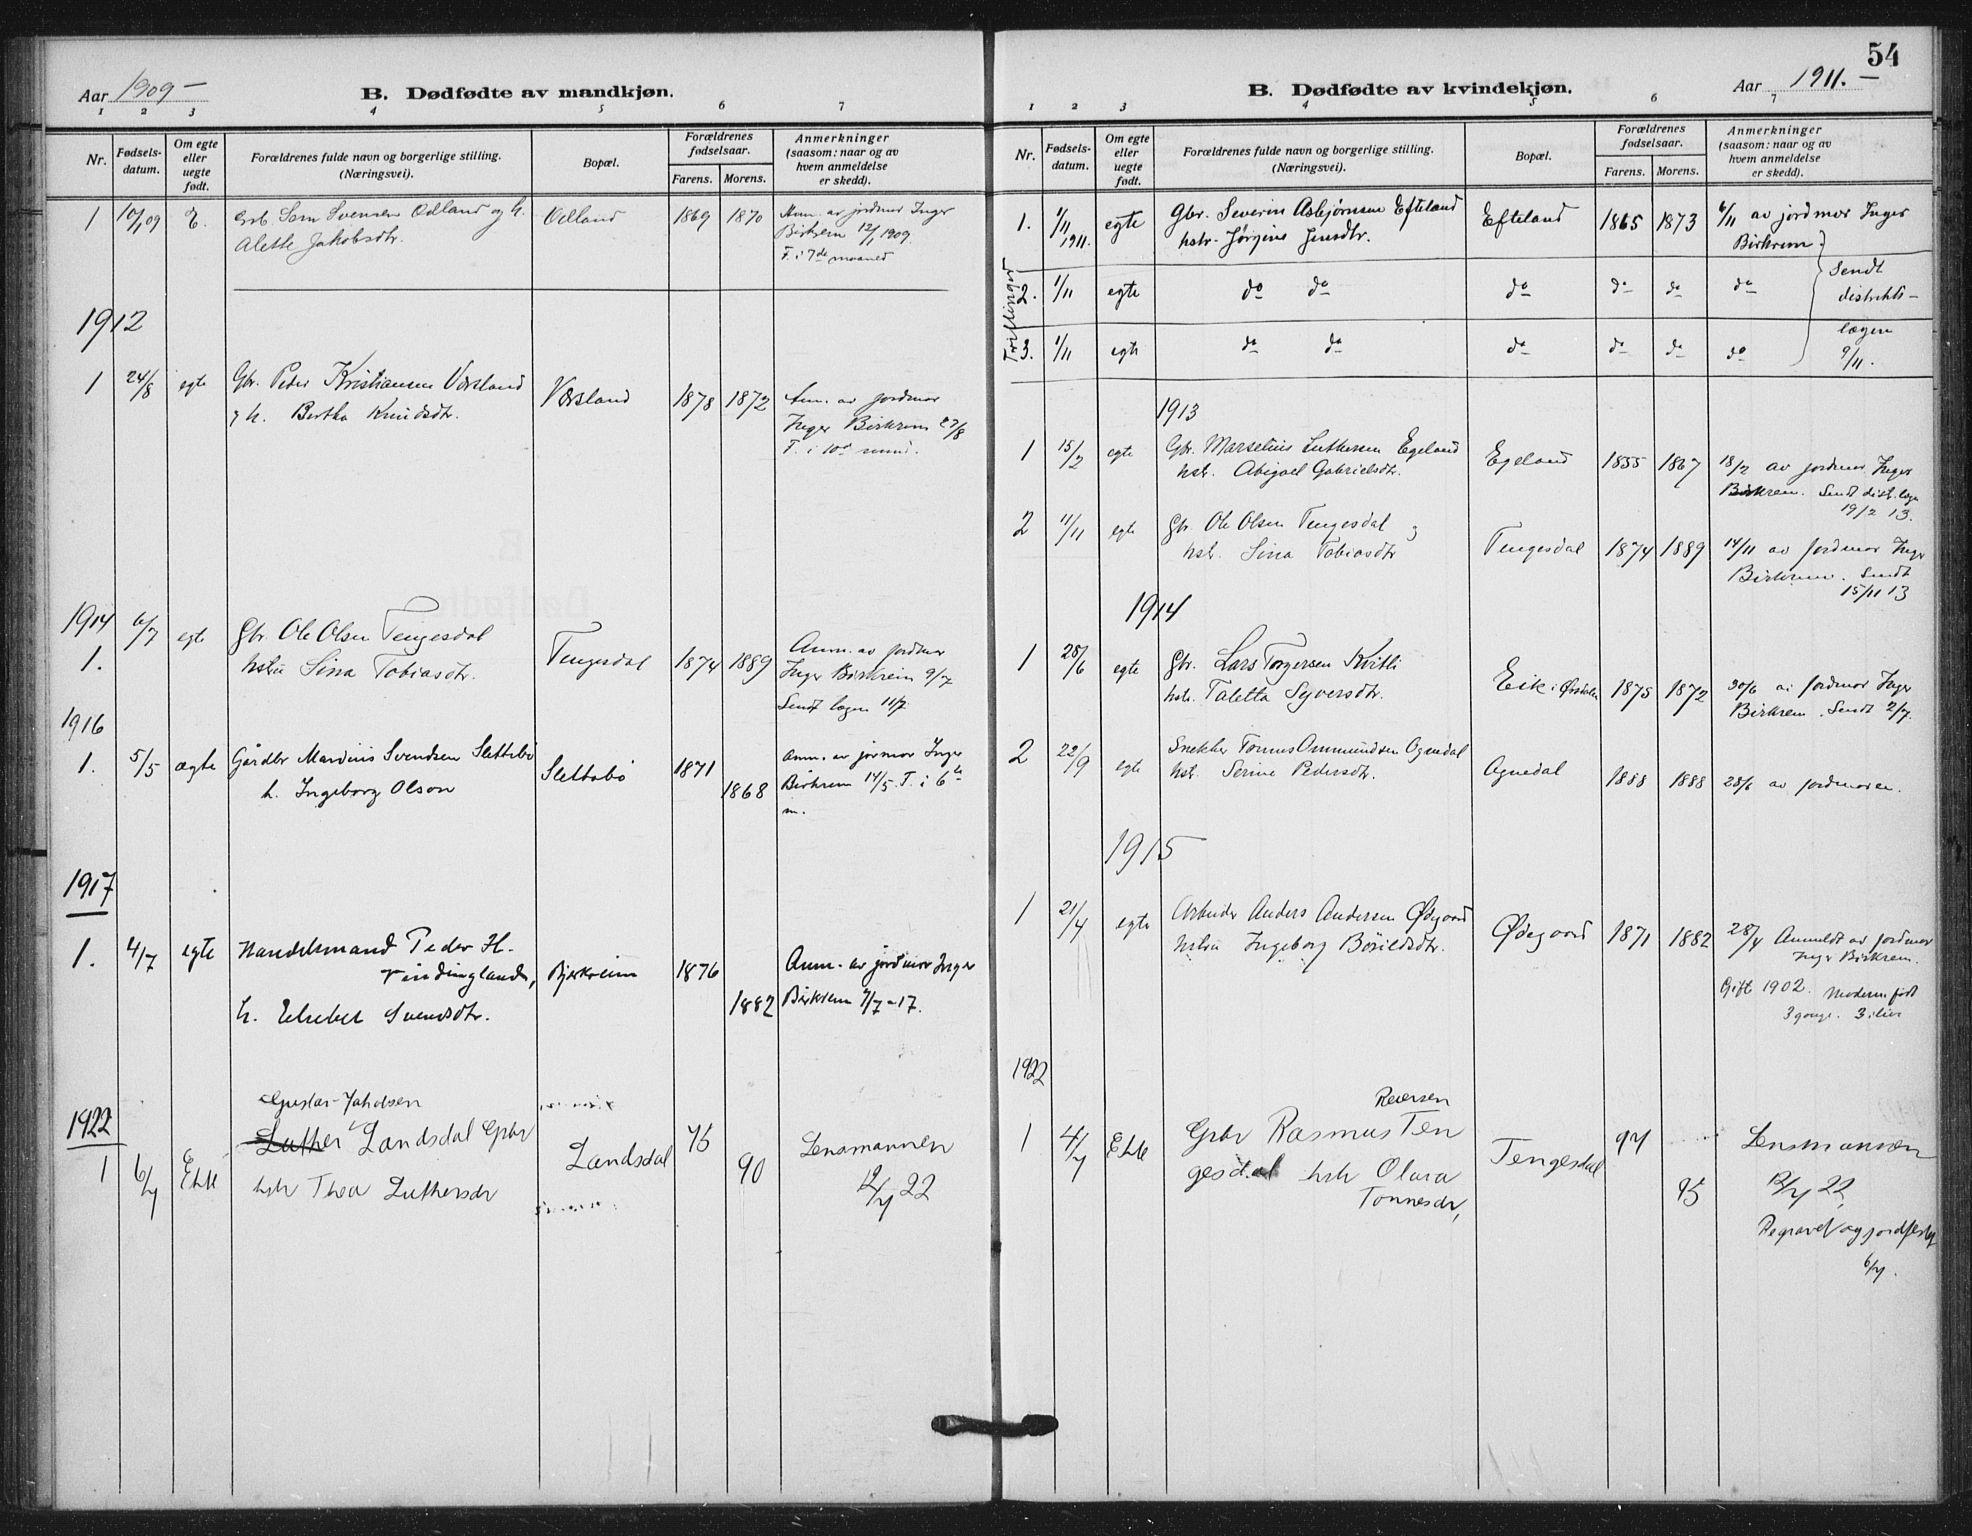 Aar 1909 –
B. Dødfødte av mandkjøn.
1 2 3 4 5 6 7
Nr.
Fødsels-
datum.
Om egte
eller
uegte
født.
Forældrenes fulde navn og borgerlige stilling.
(Næringsvei).
Bopæl.
Forældrenes
fødselsaar.
Farens. Morens.
Anmerkninger
(saasom: naar og av
hvem anmeldelse
er skedd).
1 10/1 09 E. Sven Odland og h.
Alette Jakobsdtr.
Odland 1869 1870
Anm. av jordmor Inger
Birkrem 12/1 1909.
F. i 7de maaned
1912
1 24/8 egte Gbr. Peder Kristiansen Vassland
h. Bertha Knudsdtr.
1878 1872
Anm. av jordmor
Inger Birkrem 27/8
1914
1. 6/7 egte Gbr. Ole Olsen Tengesdal
hstru Sina Tobiasdtr.
Tengesdal 1874 1889
Anm. av jordmor
Inger Birkrem 9/7
Sendt lægen 11/7
1916
1. 5/5 ægte Gårdbr Mardius Svendsen Slettebø
h. Ingeborg Olson
Slettebø 1871 1868
Anm. av jormor Inger
Birkrem 14/5. F. i 6te
m.
1917
1. 4/7 egte Handelsmand Peder H.
h. Elsebet Svendsdtr.
Bjerkreim 1876 1882
Anm. av jordmor Inger
Birkrem 9/7–17.
1922
Gustav Jakobsen
1 6/7 Ekte Luther Landsdal Gbr
hstr Thea Luthersdr
Landsdal 75 90
Lensmannen
12/7 22
54
Aar 1911. –
B. Dødfødte av kvindekjøn.
1 2 3 4 5 6 7
Nr.
Fødsels-
datum.
Om egte
eller
uegte
født.
Forældrenes fulde navn og borgerlige stilling.
(Næringsvei).
Bopæl.
Forældrenes
fødselsaar.
Farens. Morens.
Anmerkninger
(saasom: naar og av
hvem anmeldelse
er skedd).
1. 1/11 1911. egte Gbr. Severin Asbjørnsen Efteland
hstr. Jørgine Jensdtr.
Efteland 1865 1873
6/11 av jordmor Inger
Birkrem.
Trillinger
2. 1/11 egte do do do do do do
Sendt
distrikts-
3. 1/11 egte do do do do do do
lægen
9/11.
1913
1 15/2 egte Gbr. Marselius Luthersen Egeland
hstr. Abigael Gabrielsdtr.
Egeland 1855 1867
18/2 av jordmor Inger
Birkrem. Sendt dist.læge
19/2 13.
2 11/11 egte Gbr. Ole Olsen Tengesdal og
hstr. Sina Tobiasdtr
Tengesdal 1874 1889
14/11 av jordmor Inger
Birkrem. Sendt
15/11 13
1914
1 28/6 egte Gbr. Lars Torgersen Kvitli
hstr. Taletta Syversdtr.
Eik i Ørsdalen 1875 1872
30/6 av jordmor Inger
Birkrem. Sendt 2/7.
2 22/9 egte Snekker Tønnes Ommundsen Ognedal
hstr. Serine Pedersdtr.
Ognedal 1888 1888
28/6 av jordmoren.
1915
1 21/4 egte Arbeider Anders Andersen Ødegaard
hstru Ingeborg Bårildsdtr.
Ødegaard 1871 1882
28/4 Anmeldt av jordmor
Inger Birkrem.
Gift 1902. Moderen født
3 gange.
1922
Reiersen
1 4/7 Ekte Grbr Rasmus Ten
gesdal hstr Olava
Tonnesdr,
Tengesdal 97 95
Lensmannen
12/7 22,
Begravet og jordfestet
6/7.